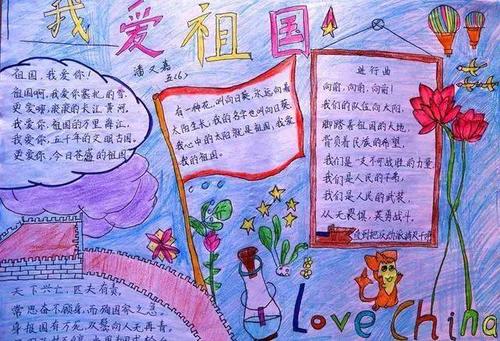 我爱祖国!
潘又嘉
五(6)
祖国,我爱你!
祖国啊,我爱你寒礼的雪,
滚滚的大江黄河,
我爱你,祖国的万里
我爱你,五千年的文明古国,
更爱你,今日苍盛的祖国
有一种花,叫向日葵,永远向着
太阳生长,我的名字也叫向日葵,
我心中的太阳就是祖国,我爱
我的祖国。
进行曲
向前,向前,向前!
我们的队伍向太阳,
脚踏着祖国的大地,
背负着民族的希望,
我们是一支不可战胜的力量
我们是人民的子弟,
我们是人民的武装,
从无畏惧,英勇战斗,
直到把反动派消灭干净
天下兴亡,匹夫有责,
常思奋不顾身,而殉国家之急。
身报国有万死,双鬓向人无再青。
Love China